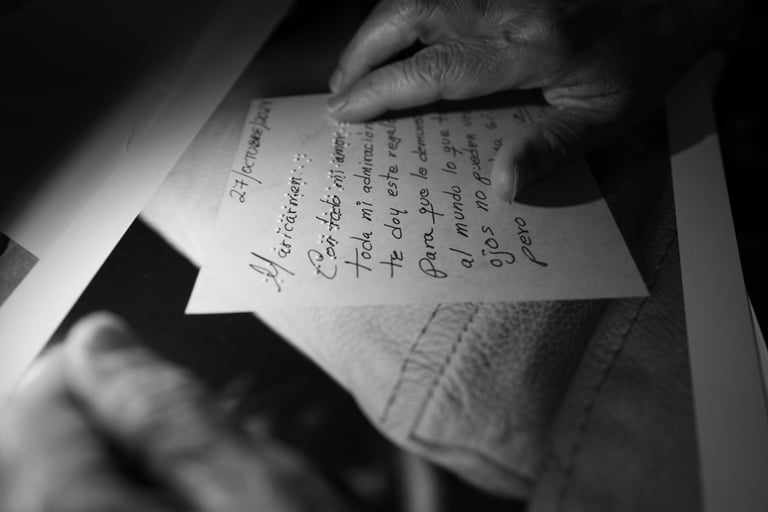 27/OCTUBRE/202
Maricarmen:
Con todo mi amor
toda mi admiración
te doy este regalo
Para que le demues
al mundo lo que t
ojos no pueden ve
pero si